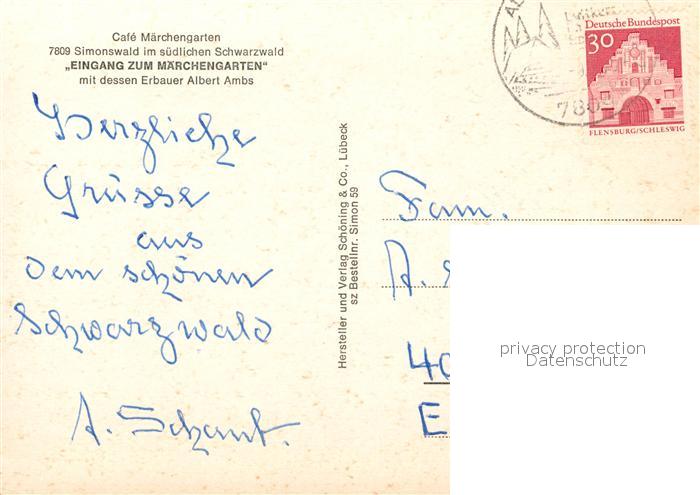 Café Märchengarten
7809 Simonswald im südlichen Schwarzwald
„EINGANG ZUM MÄRCHENGARTEN“
mit dessen Erbauer Albert Ambs
Herzliche
Grüsse
aus
dem schönen
Schwarzwald
A.
Hersteller und Verlag Schöning & Co., Lübeck
sz Bestellnr. Simon 59
Deutsche Bundespost
30
FLENSBURG/SCHLESWIG
7809
Fam.
A.
40
E
privacy protection
Datenschutz